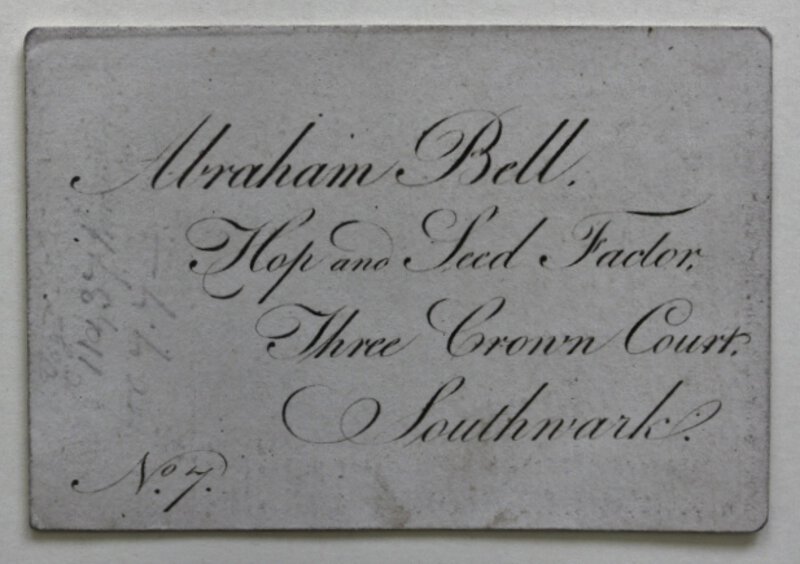 Abraham Bell.
Hop and Seed Factor,
Three Crown Court,
Southwark.
No. 7.